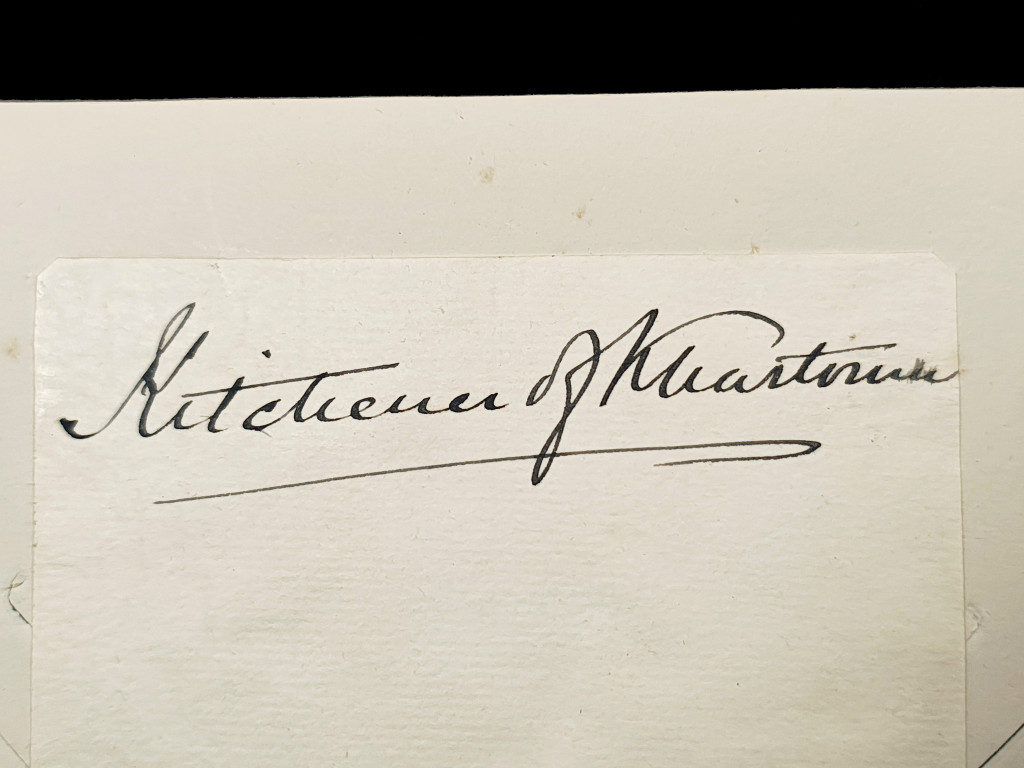 Kitchener of Khartoum